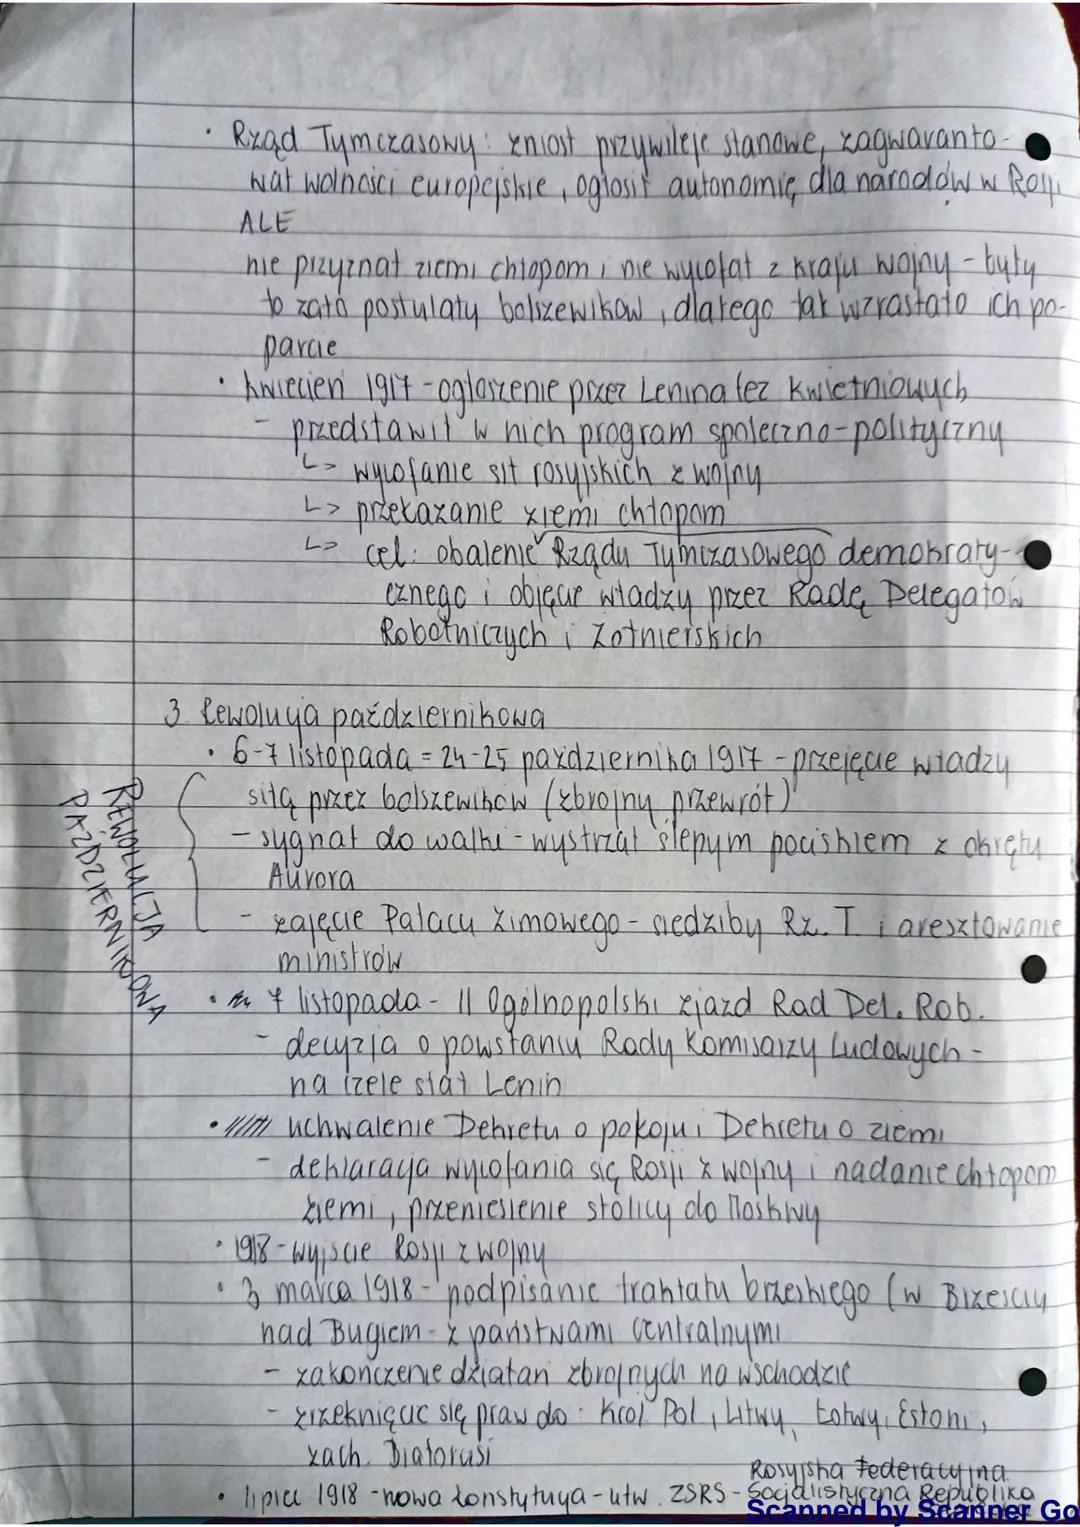 • Rząd Tymczasowy: zniosł przywileje stanowe, zagwaranto-
wał wolności europejskie, ogłosił autonomię dla narodów w Rosji
ALE
nie przyznał ziemi chłopom i nie wycofał z kraju wojny - były
to zato postulaty bolszewików, dlatego tak wzrastało ich po-
parcie
• kwiecień 1917 - ogłoszenie przez Lenina tez kwietniowych
- przedstawił w nich program społeczno-polityczny
↳ wycofanie sił rosyjskich z wojny
↳ przekazanie ziemi chłopom
↳ cel: obalenie Rządu Tymczasowego demokraty-
cznego i objęcie władzy przez Radę Delegatów
Robotniczych i Żołnierskich
3. Rewolucja październikowa
• 6-7 listopada = 24-25 października 1917 - przejęcie władzy
siłą przez bolszewików (zbrojny przewrót)
- sygnał do walki - wystrzał ślepym pociskiem z okrętu
Aurora
- zajęcie Pałacu Zimowego - siedziby Rz. T. i aresztowanie
ministrów
REWOLUCJA
PAŹDZIERNIKOWA
• 7 listopada - II Ogólnopolski zjazd Rad Del. Rob.
- decyzja o powstaniu Rady Komisarzy Ludowych -
na czele stał Lenin
• uchwalenie Dekretu o pokoju i Dekretu o ziemi
- deklaracja wycofania się Rosji z wojny i nadanie chłopom
ziemi, przeniesienie stolicy do Moskwy
• 1918 - wyjście Rosji z wojny
• 3 marca 1918 - podpisanie traktatu brzeskiego (w Brześciu
nad Bugiem - z państwami centralnymi
- zakończenie działań zbrojnych na wschodzie
- zrzeknięcie się praw do: Król Pol, Litwy, Łotwy, Estoni,
zach. Białorusi
Rosyjska Federacyjna
• lipiec 1918 - nowa konstytucja - utw. ZSRS - Socjalistyczna Republika
Scanned by Scanner Go